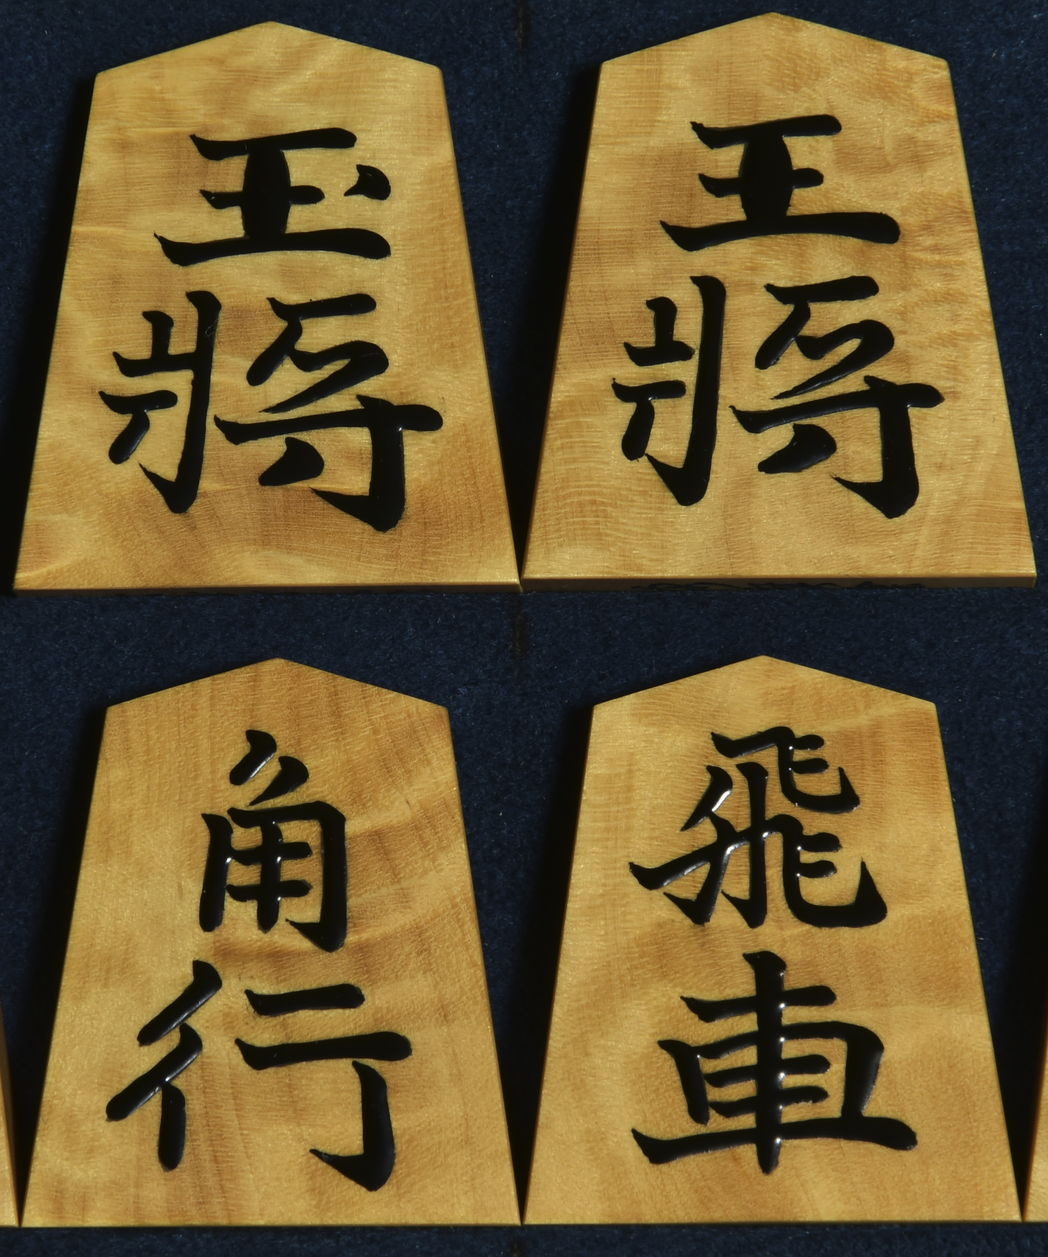 玉將
王將
角行
飛車